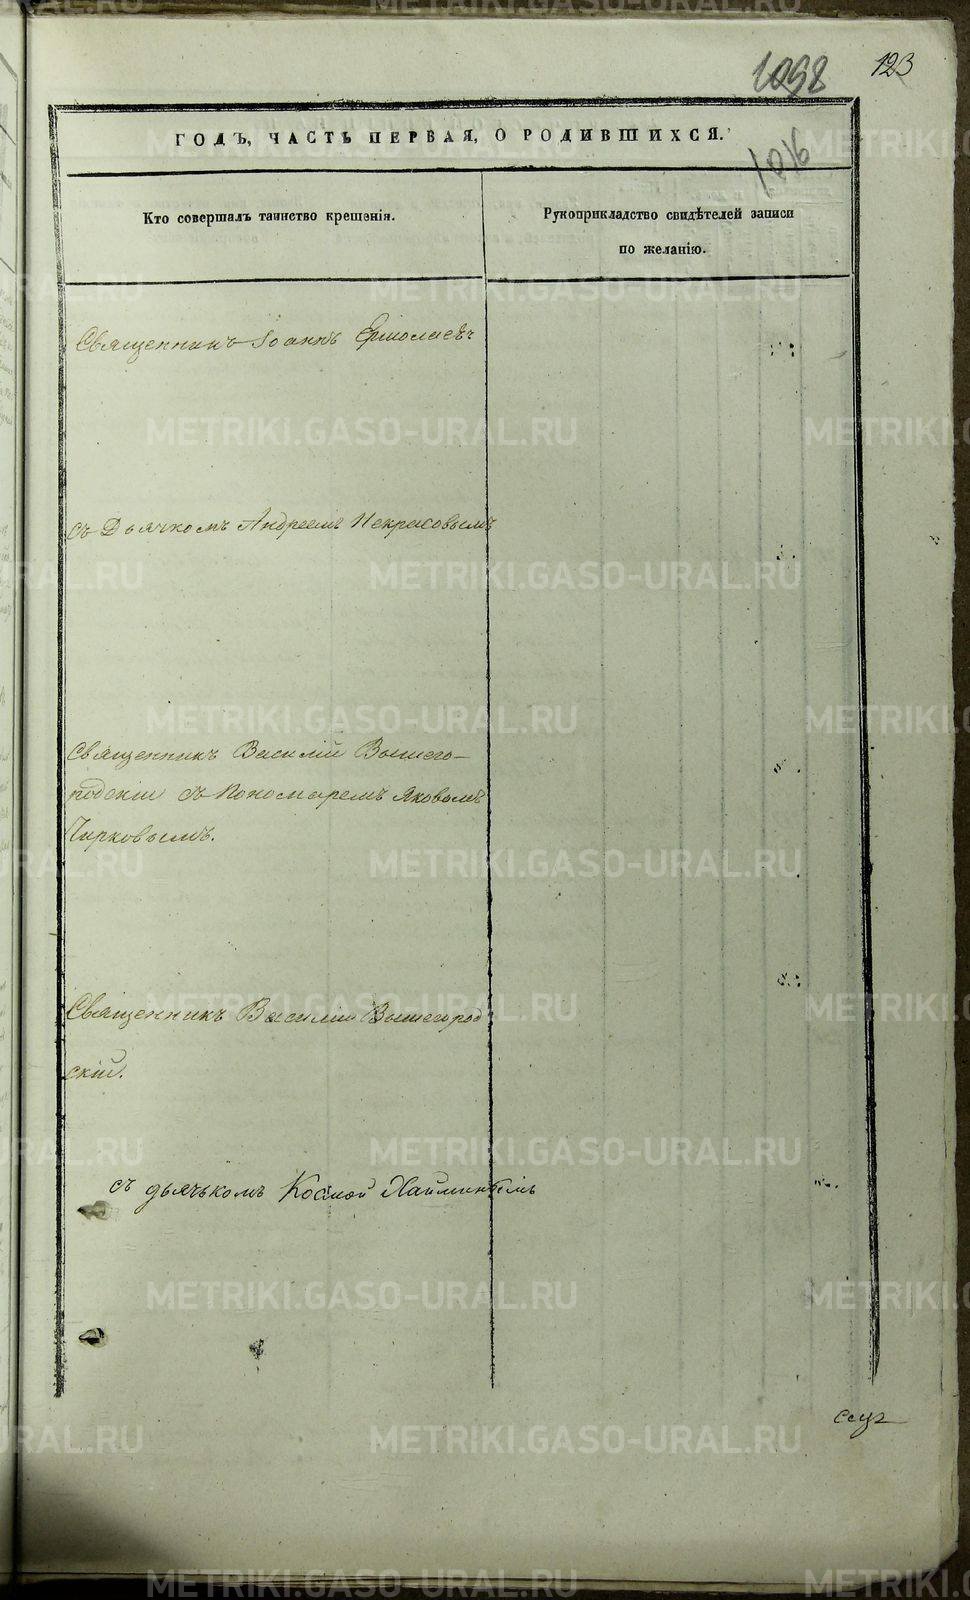 1098
123
ГОДЪ, ЧАСТЬ ПЕРВАЯ, О РОДИВШИХСЯ.
1016
Кто совершалъ таинство крещенія.
Рукоприкладство свидѣтелей записи
по желанію.
Священникъ Іоаннъ Ермолаевъ
съ Дьячкомъ Андреемъ Некрасовымъ
Священникъ Василій Вышего-
родскій съ Пономаремъ Яковомъ
Чирковымъ.
Священникъ Василій Вышегород
скій.
съ дьячькомъ Космой
METRIKI.GASO-URAL.RU